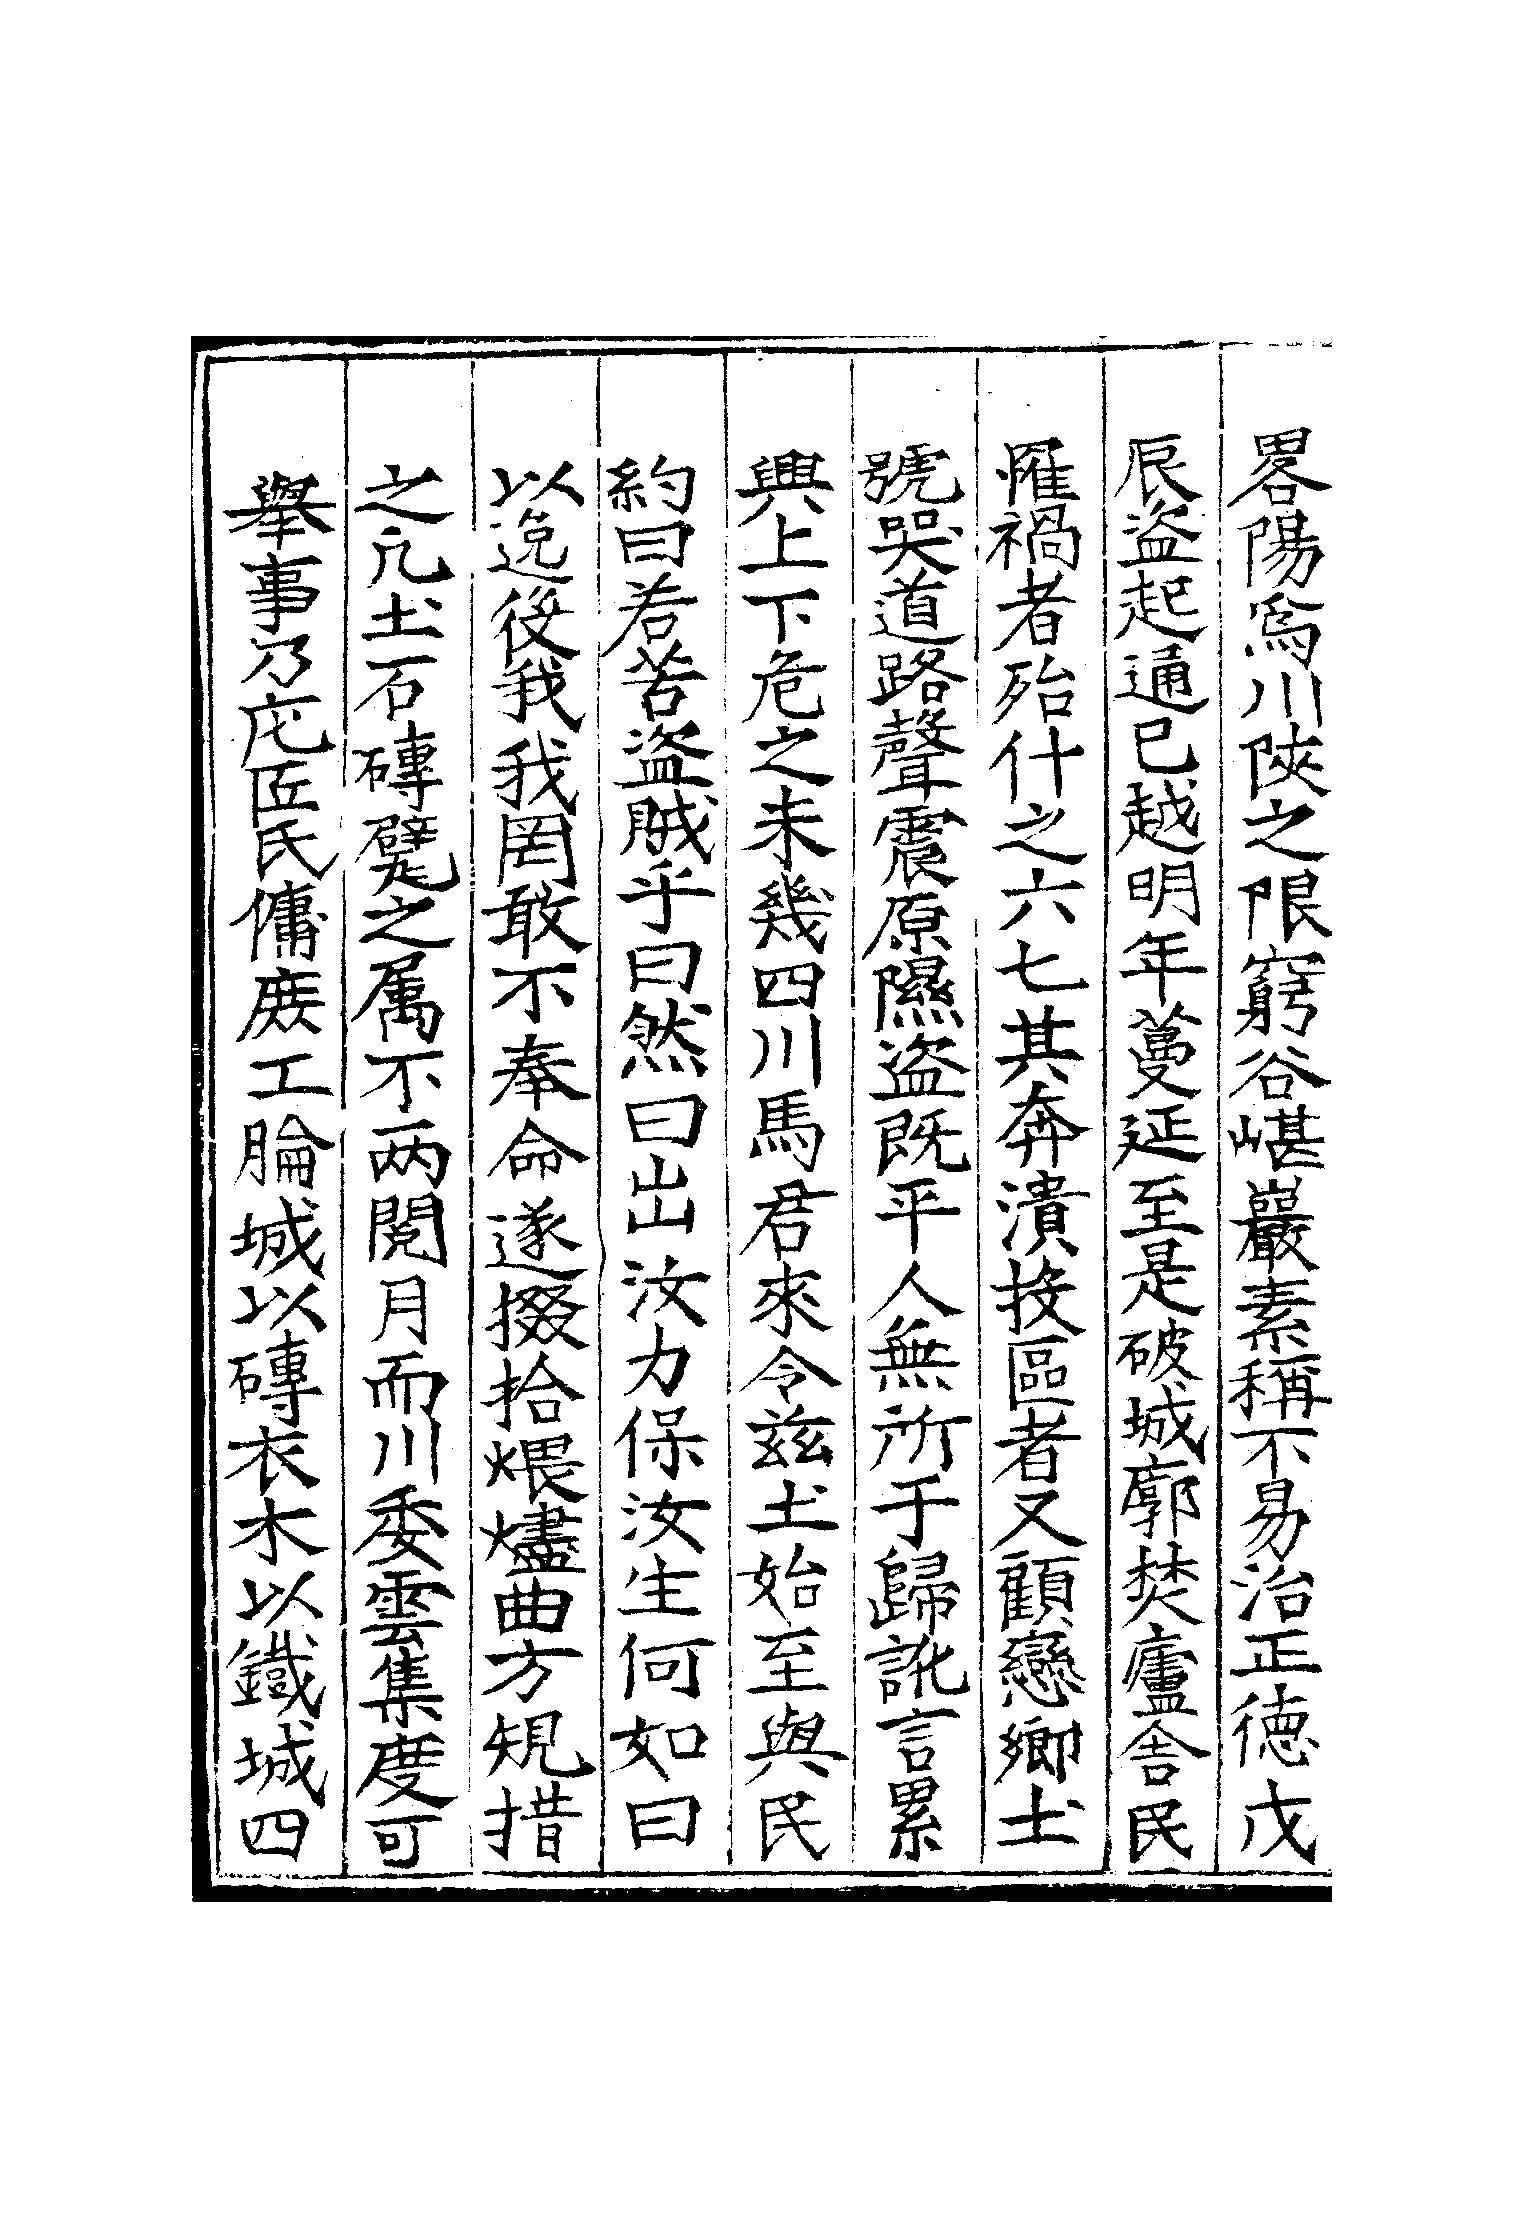 畧陽爲川陜之限窮谷嵁巖素稱不易治正德戊
辰盗起通巴越明年蔓延至是破城郭焚廬舎民
罹禍者殆什之六七其奔潰投區者又顧戀鄉土
號哭道路聲震原隰盗既平人無所于歸訛言累
興上下危之未幾四川馬君來令兹土始至與民
約曰若苦盗賊乎曰然曰出汝力保汝生何如曰
以迯後我我罔敢不奉命遂掇拾煨燼曲方規措
之凡土石磚甓之属不两閲月而川委雲集度可
舉事乃庀匠氏傭庻工腀城以磚衣木以鐵城四